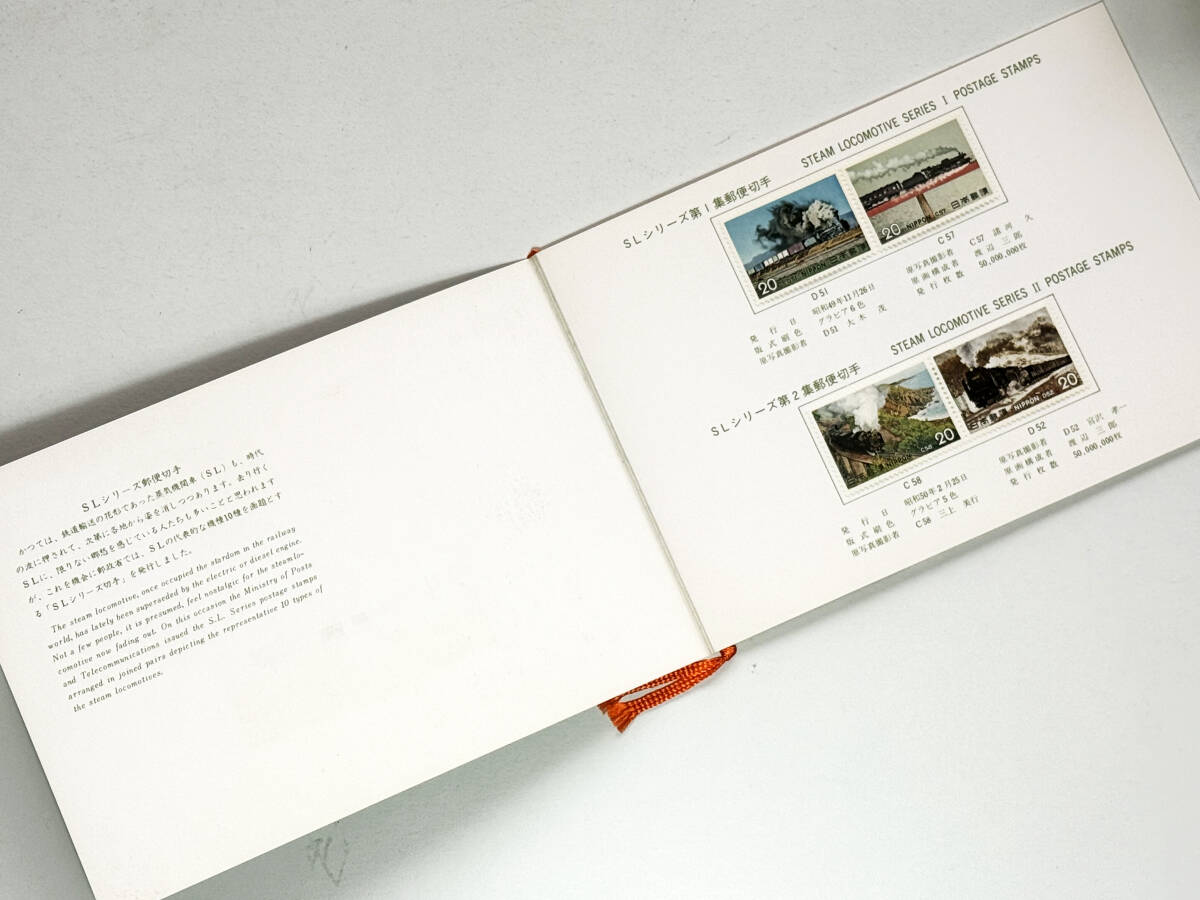 SLシリーズ郵便切手
かつては、鉄道輸送の花形であった蒸気機関車（SL）も、時代
の波に押されて、次第に各地から姿を消しつつあります。去り行く
SLに、限りない郷愁を感じている人たちも多いことと思われます
が、これを機会に郵政省では、SLの代表的な機種10種を画題とす
る「SLシリーズ切手」を発行しました。
The steam locomotive, once occupied the stardom in the railway
world, has lately been superseded by the electric or diesel engine.
Not a few people, it is presumed, feel nostalgic for the steamlo-
comotive now fading out. On this occasion the Ministry of Posts
and Telecommunications issued the S.L. Series postage stamps
arranged in joined pairs depicting the representative 10 types of
the steam locomotives.
SLシリーズ第1集郵便切手 STEAM LOCOMOTIVE SERIES I POSTAGE STAMPS
20 NIPPON 日本郵便
20 NIPPON C57 日本郵便
D51
発行日 昭和49年11月26日
版式刷色 グラビア6色
原写真撮影者 D51 大木 茂
C57
原写真撮影者 C57 諸河 久
原画構成者 渡辺 三郎
発行枚数 50,000,000枚
SLシリーズ第2集郵便切手 STEAM LOCOMOTIVE SERIES II POSTAGE STAMPS
NIPPON C58 20
日本郵便 NIPPON D52 20
C58
発行日 昭和50年2月25日
版式刷色 グラビア5色
原写真撮影者 C58 三上 美行
D52
原写真撮影者 D52 宮沢 孝一
原画構成者 渡辺 三郎
発行枚数 50,000,000枚